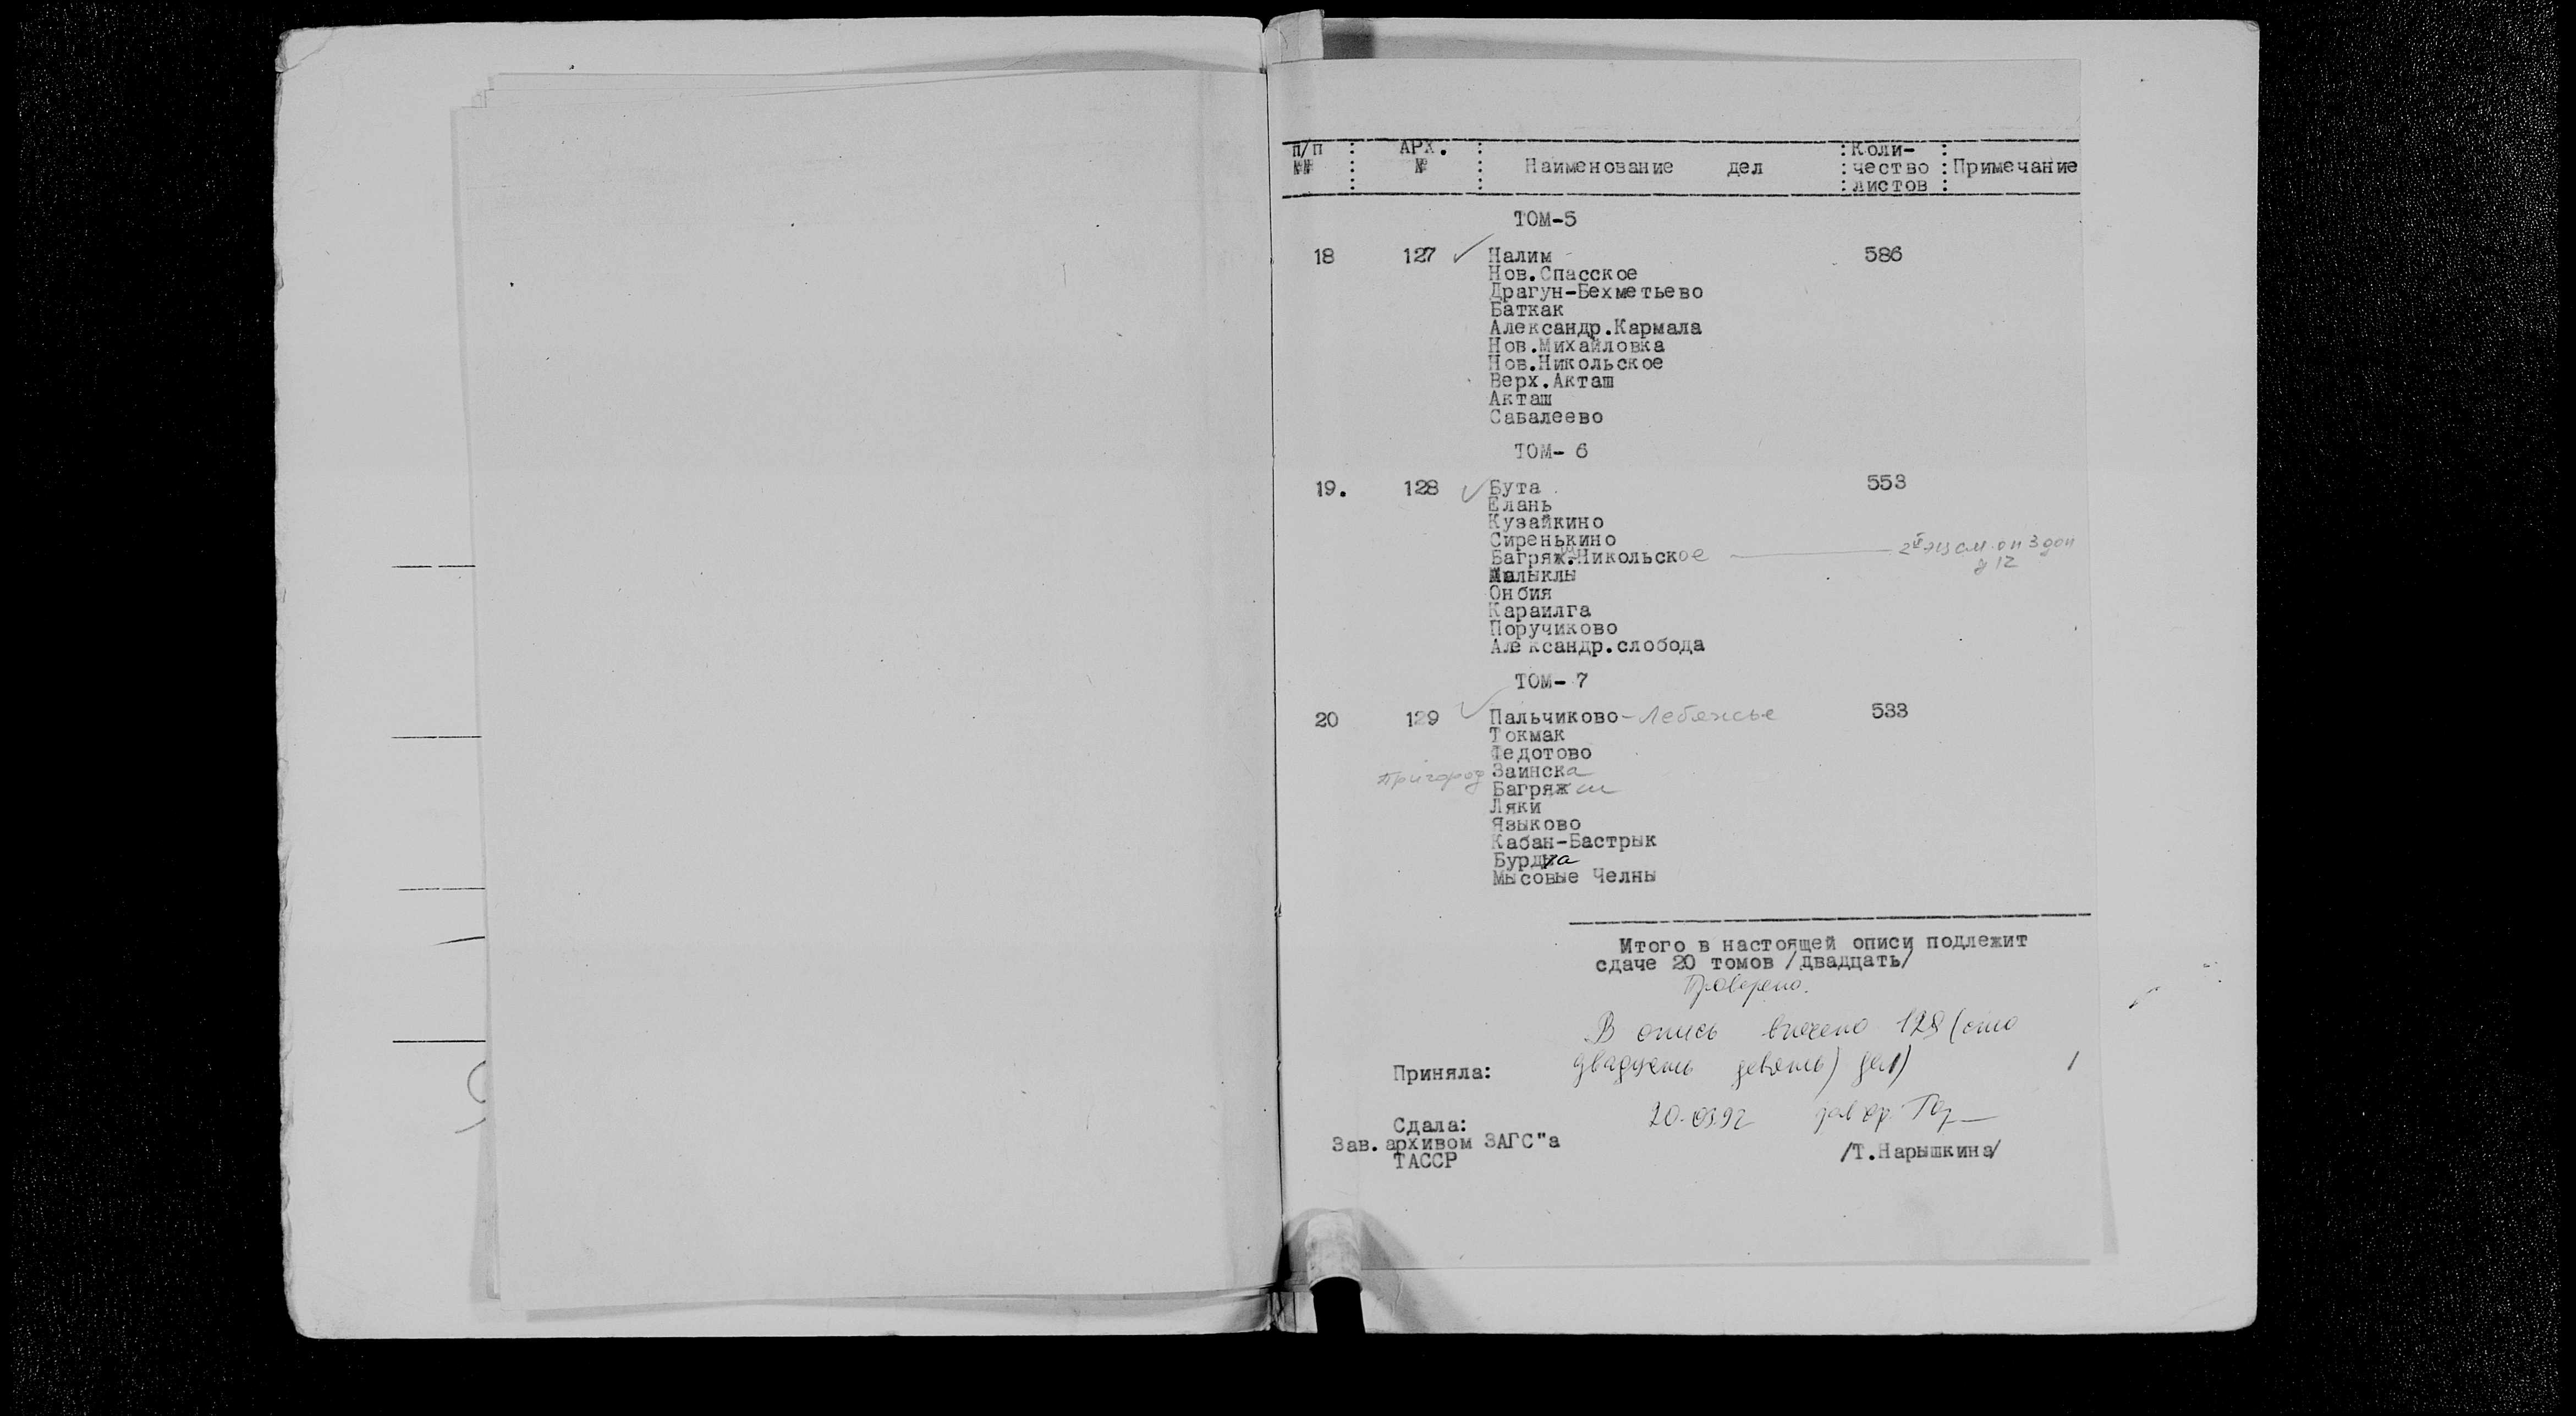 п/п АРХ. Коли-
№№ № Наименование дел чество Примечание
листов
ТОМ-5
18 127 Налим 586
Нов.Спасское
Драгун-Бехметьево
Баткак
Александр.Кармала
Нов.Михайловка
Нов.Никольское
Верх.Акташ
Акташ
Савалеево
ТОМ- 6
19. 128 Бута 553
Елань
Кузайкино
Сиренькино
Багряж.-Никольское 2й экз см. оп 3 доп
д 12
Малыклы
Онбия
Караилга
Поручиково
Александр.слобода
ТОМ- 7
20 129 Пальчиково-Лебяжье 533
Токмак
Федотово
пригород Заинска
Багряж
Ляки
Языково
Кабан-Бастрык
Бурда
Мысовые Челны
Итого в настоящей описи подлежит
сдаче 20 томов /двадцать/
Проверено.
В опись внесено 129 (сто
двадцать девять) дел)
Приняла:
20.03.92
Сдала:
Зав. архивом ЗАГС"а
ТАССР /Т.Нарышкина/